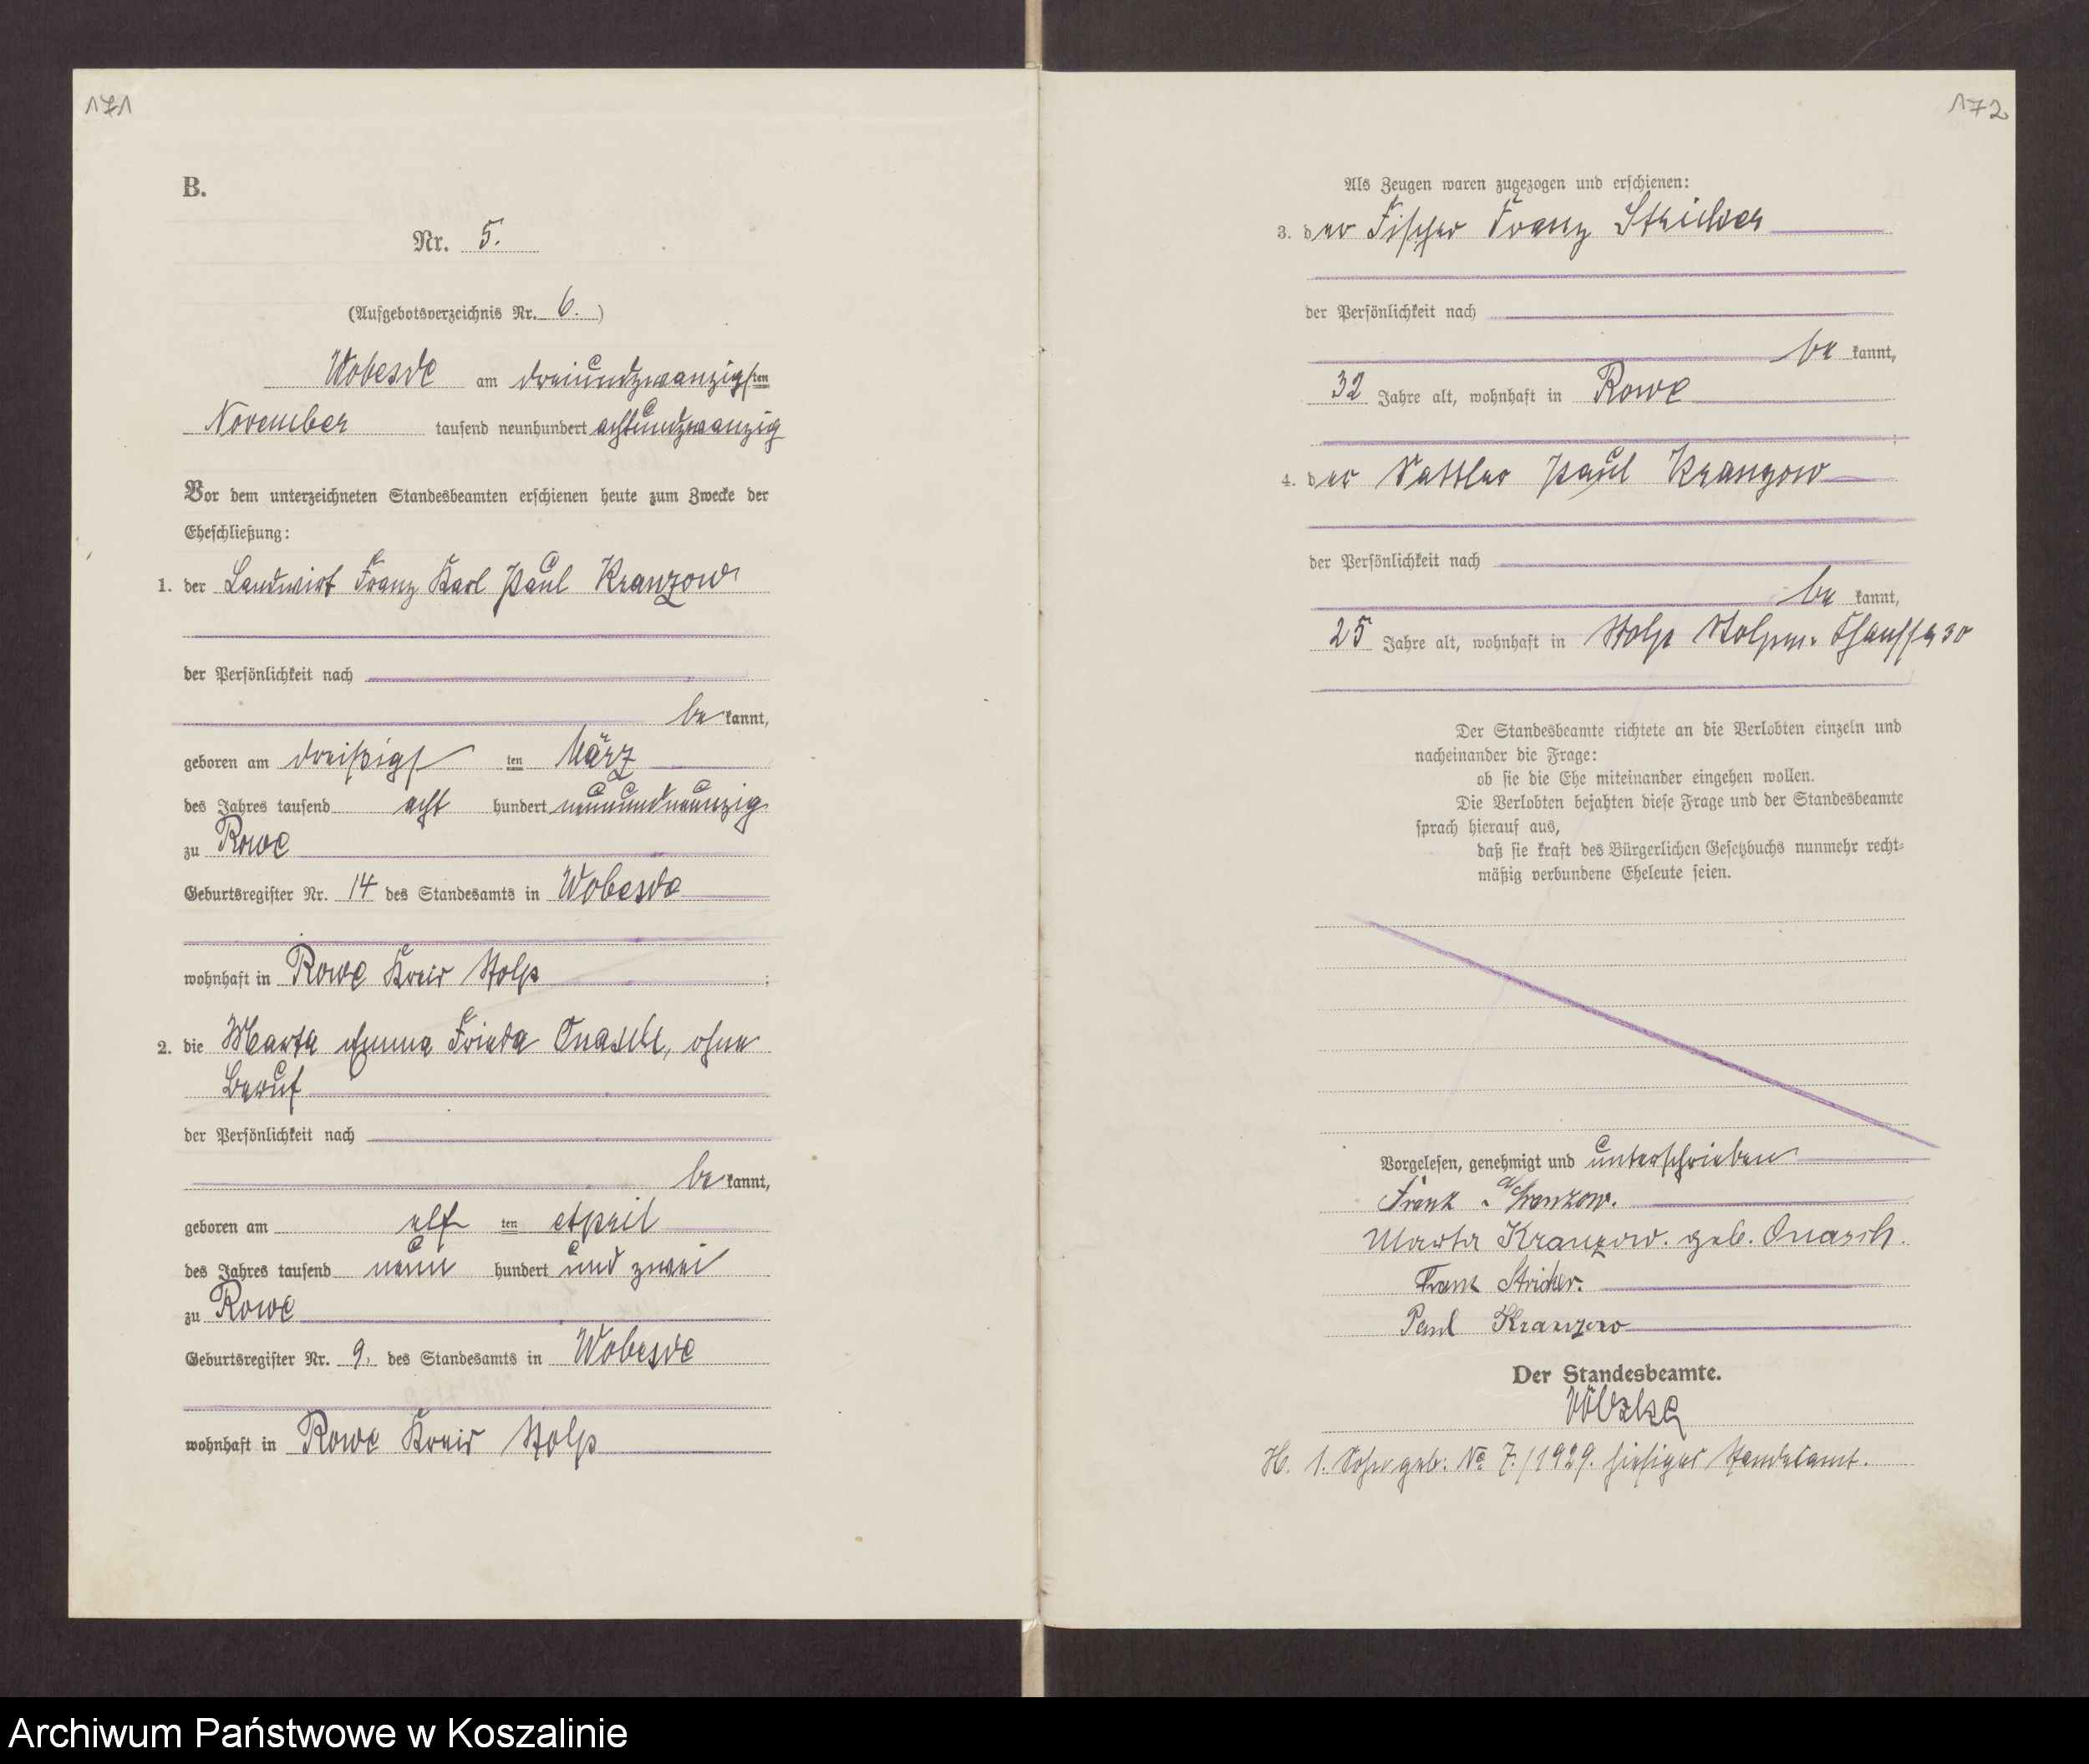 171
B.
Nr. 5.
(Aufgebotsverzeichnis Nr. 6.)
Wobesde am dreiundzwanzigsten
November tausend neunhundert achtundzwanzig
Vor dem unterzeichneten Standesbeamten erschienen heute zum Zwecke der
Eheschließung:
1. der Landwirt Franz Karl Paul Kranzow
der Persönlichkeit nach
be kannt,
geboren am dreißigsten März
des Jahres tausend acht hundert neunundneunzig
zu Rowe
Geburtsregister Nr. 14 des Standesamts in Wobesde
wohnhaft in Rowe Kreis Stolp ;
2. die Marta Emma Frieda Onasch, ohne
Beruf
der Persönlichkeit nach
be kannt,
geboren am elf ten April
des Jahres tausend neun hundert und zwei
zu Rowe
Geburtsregister Nr. 9. des Standesamts in Wobesde
wohnhaft in Rowe Kreis Stolp
172
Als Zeugen waren zugezogen und erschienen:
3. der Fischer Franz Stricker
der Persönlichkeit nach
be kannt,
32 Jahre alt, wohnhaft in Rowe
;
4. der Sattler Paul Kranzow
der Persönlichkeit nach
be kannt,
25 Jahre alt, wohnhaft in Stolp Stolpm. Chaussee 30
Der Standesbeamte richtete an die Verlobten einzeln und
nacheinander die Frage:
ob sie die Ehe miteinander eingehen wollen.
Die Verlobten bejahten diese Frage und der Standesbeamte
sprach hierauf aus,
daß sie kraft des Bürgerlichen Gesetzbuchs nunmehr recht=
mäßig verbundene Eheleute seien.
Vorgelesen, genehmigt und unterschrieben
Franz Kranzow.
Marta Kranzow. geb. Onasch.
Franz Stricker.
Paul Kranzow
Der Standesbeamte.
Völzke
H. 1. Sohn geb: No 7./1929. hiesiges Standesamt.
Archiwum Państwowe w Koszalinie